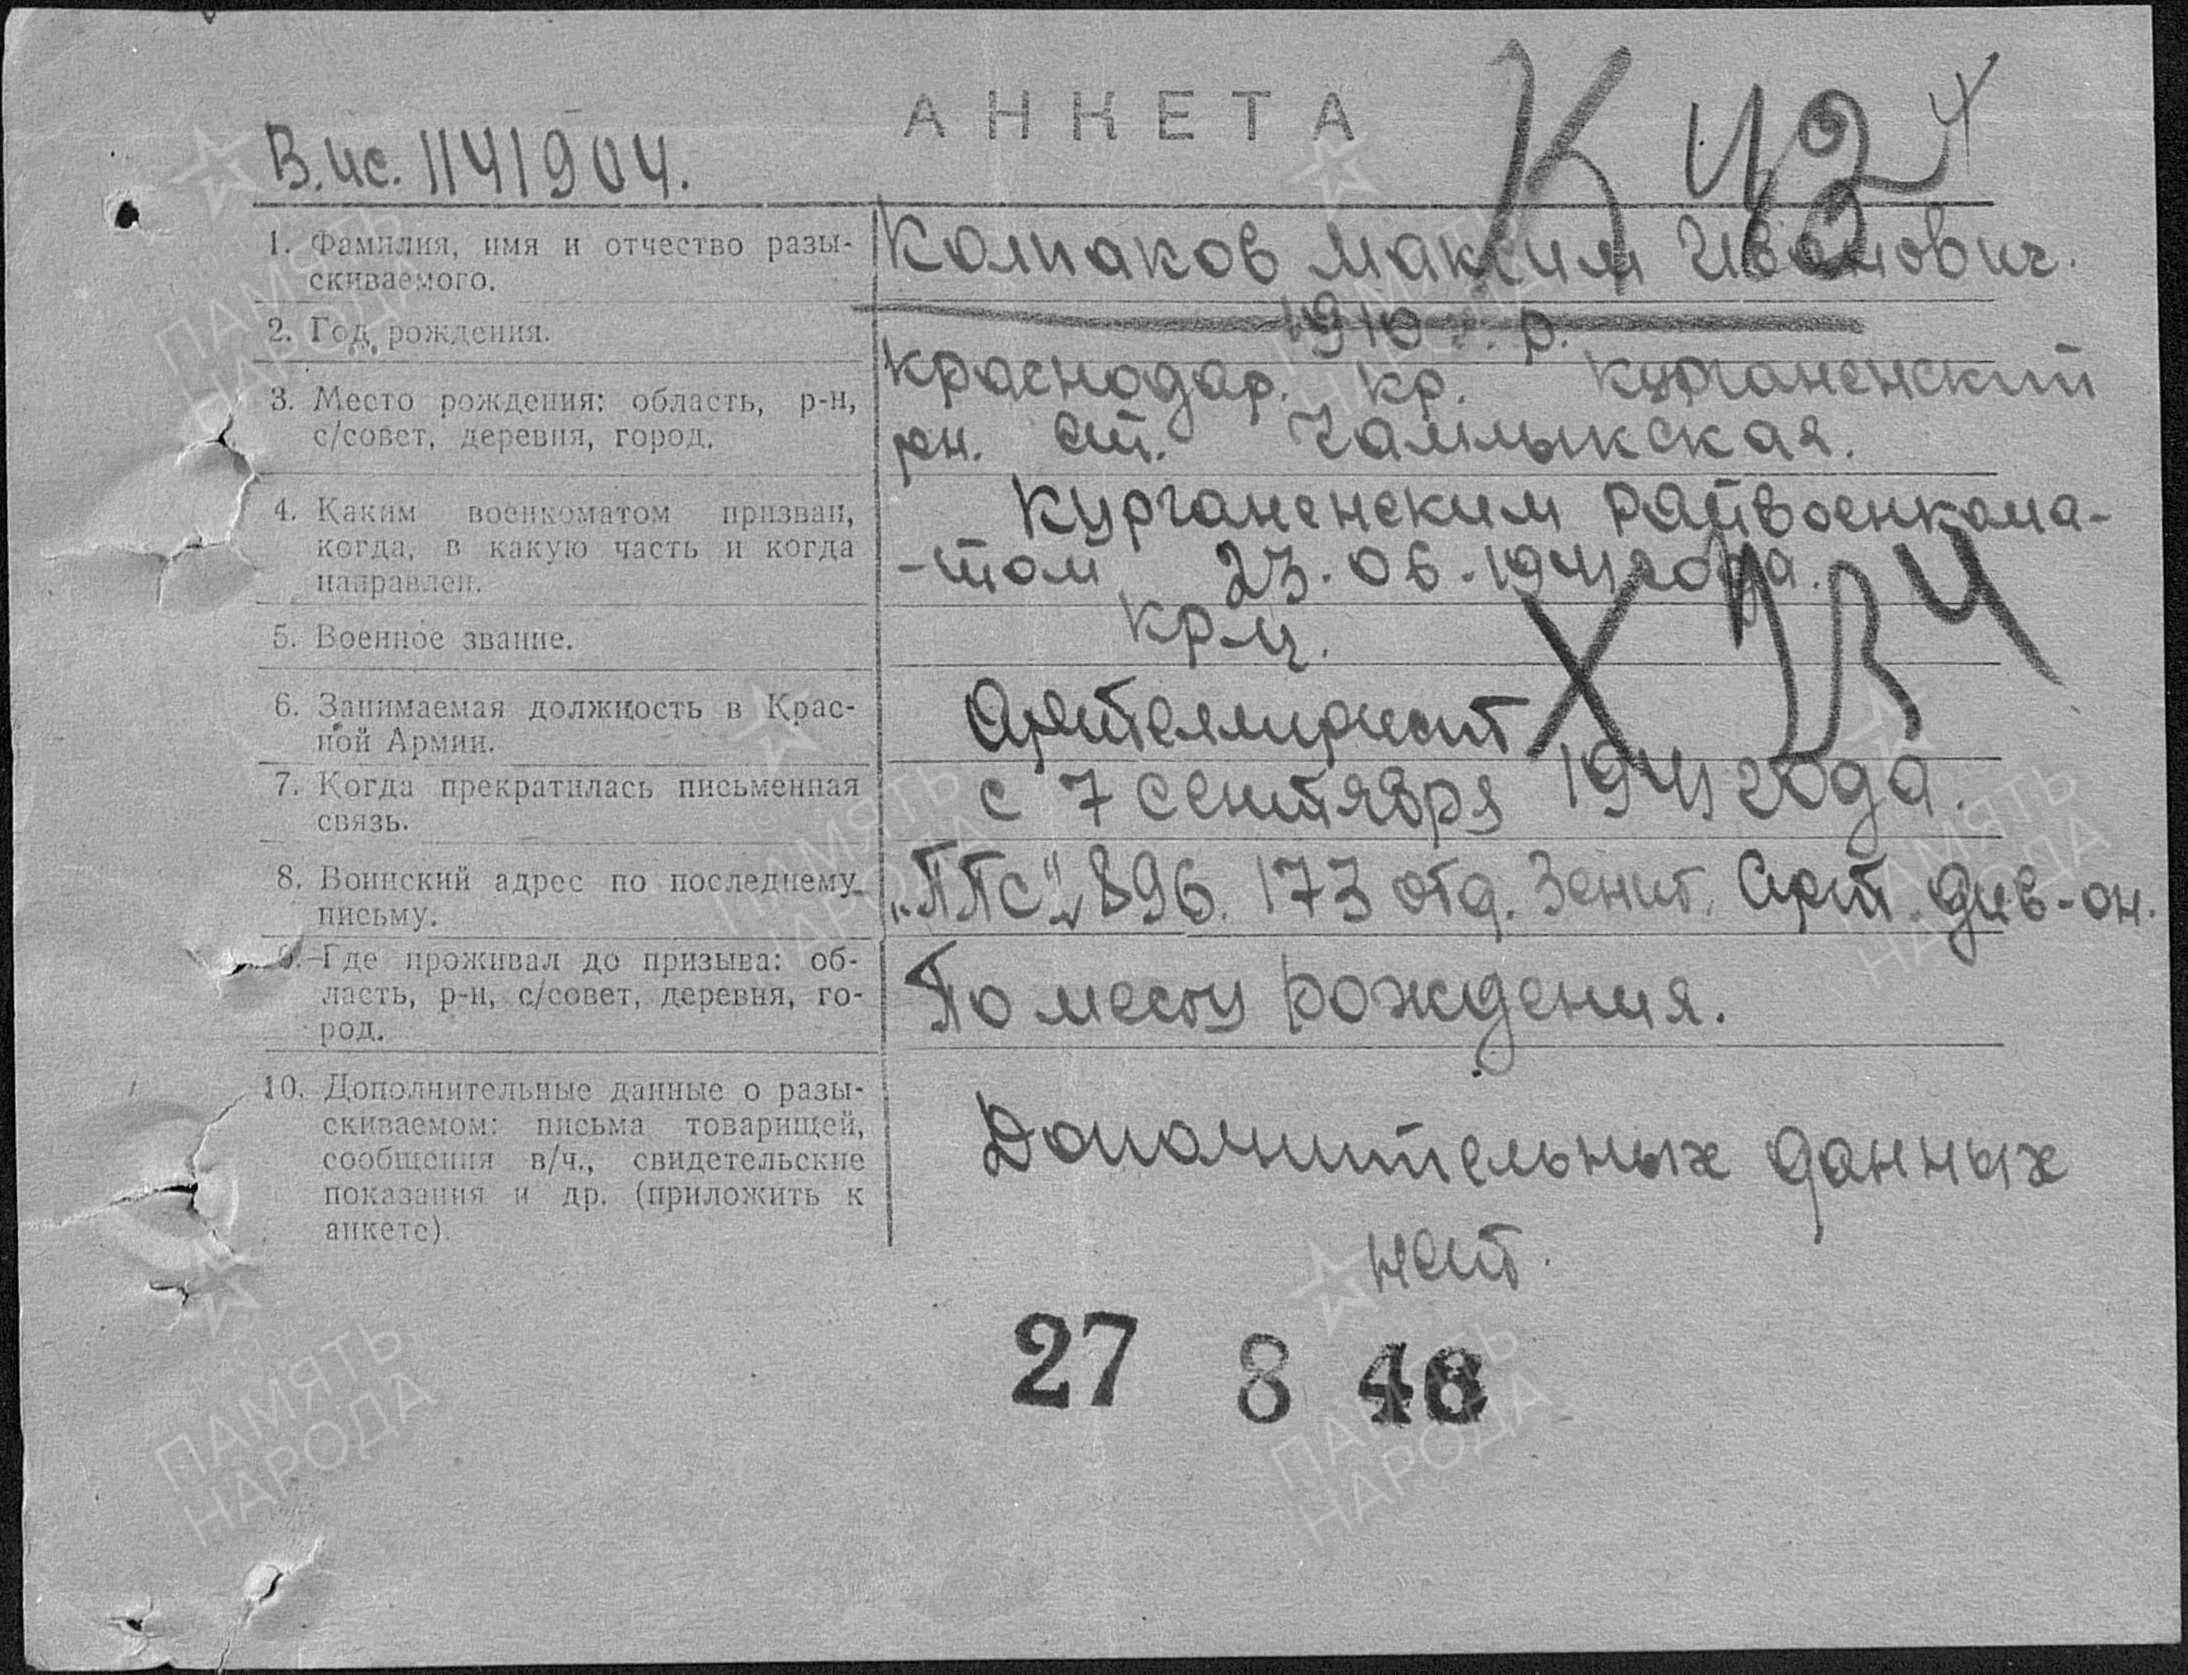 АНКЕТА
В.ис. 1141904.
1. Фамилия, имя и отчество разы-
скиваемого.
Колпаков Максим Иванович.
2. Год рождения.
1910 г. р.
3. Место рождения: область, р-н,
с/совет, деревня, город.
Краснодар. кр. Курганенский
рн. ст. Чамлыкская.
4. Каким военкоматом призван,
когда, в какую часть и когда
направлен.
Курганенским райвоенкома-
-том 23.06.1941 года.
5. Военное звание.
кр-ц.
6. Занимаемая должность в Крас-
ной Армии.
Артеллирист
7. Когда прекратилась письменная
связь.
с 7 сентября 1941 года.
8. Воинский адрес по последнему
письму.
„ППС" 896. 173 отд. Зенит. Арт. див-он.
9. Где проживал до призыва: об-
ласть, р-н, с/совет, деревня, го-
род.
По месту рождения.
10. Дополнительные данные о разы-
скиваемом: письма товарищей,
сообщения в/ч., свидетельские
показания и др. (приложить к
анкете).
Дополнительных данных
нет.
27 8 48
ПАМЯТЬ
НАРОДА
ПАМЯТЬ
НАРОДА
ПАМЯТЬ
НАРОДА
ПАМЯТЬ
НАРОДА
ПАМЯТЬ
НАРОДА
ПАМЯТЬ
НАРОДА